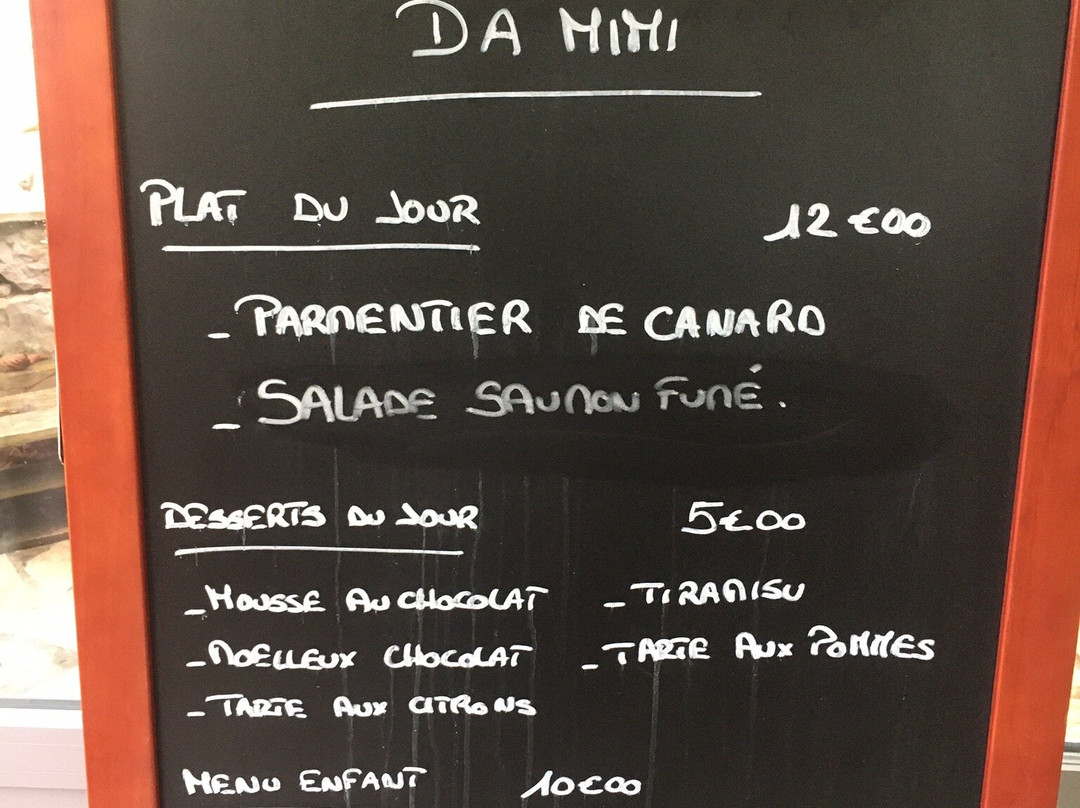 DA MIMI
PLAT DU JOUR 12€00
- PARMENTIER DE CANARD
- SALADE SAUMON FUMÉ.
DESSERTS DU JOUR 5€00
- MOUSSE AU CHOCOLAT - TIRAMISU
- MOELLEUX CHOCOLAT - TARTE AUX POMMES
- TARTE AUX CITRONS
MENU ENFANT 10€00